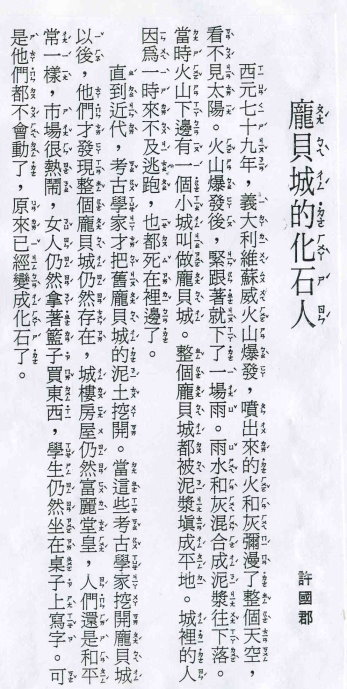 龐貝城的化石人
許國郡
西元七十九年，義大利維蘇威火山爆發，噴出來的火和灰彌漫了整個天空，
看不見太陽。火山爆發後，緊跟著就下了一場雨。雨水和灰混合成泥漿往下落。
當時火山下邊有一個小城叫做龐貝城。整個龐貝城都被泥漿填成平地。城裡的人
因爲一時來不及逃跑，也都死在裡邊了。
直到近代，考古學家才把舊龐貝城的泥土挖開。當這些考古學家挖開龐貝城
以後，他們才發現整個龐貝城仍然存在，城樓房屋仍然富麗堂皇，人們還是和平
常一樣，市場很熱鬧，女人仍然拿著籃子買東西，學生仍然坐在桌子上寫字。可
是他們都不會動了，原來已經變成化石了。